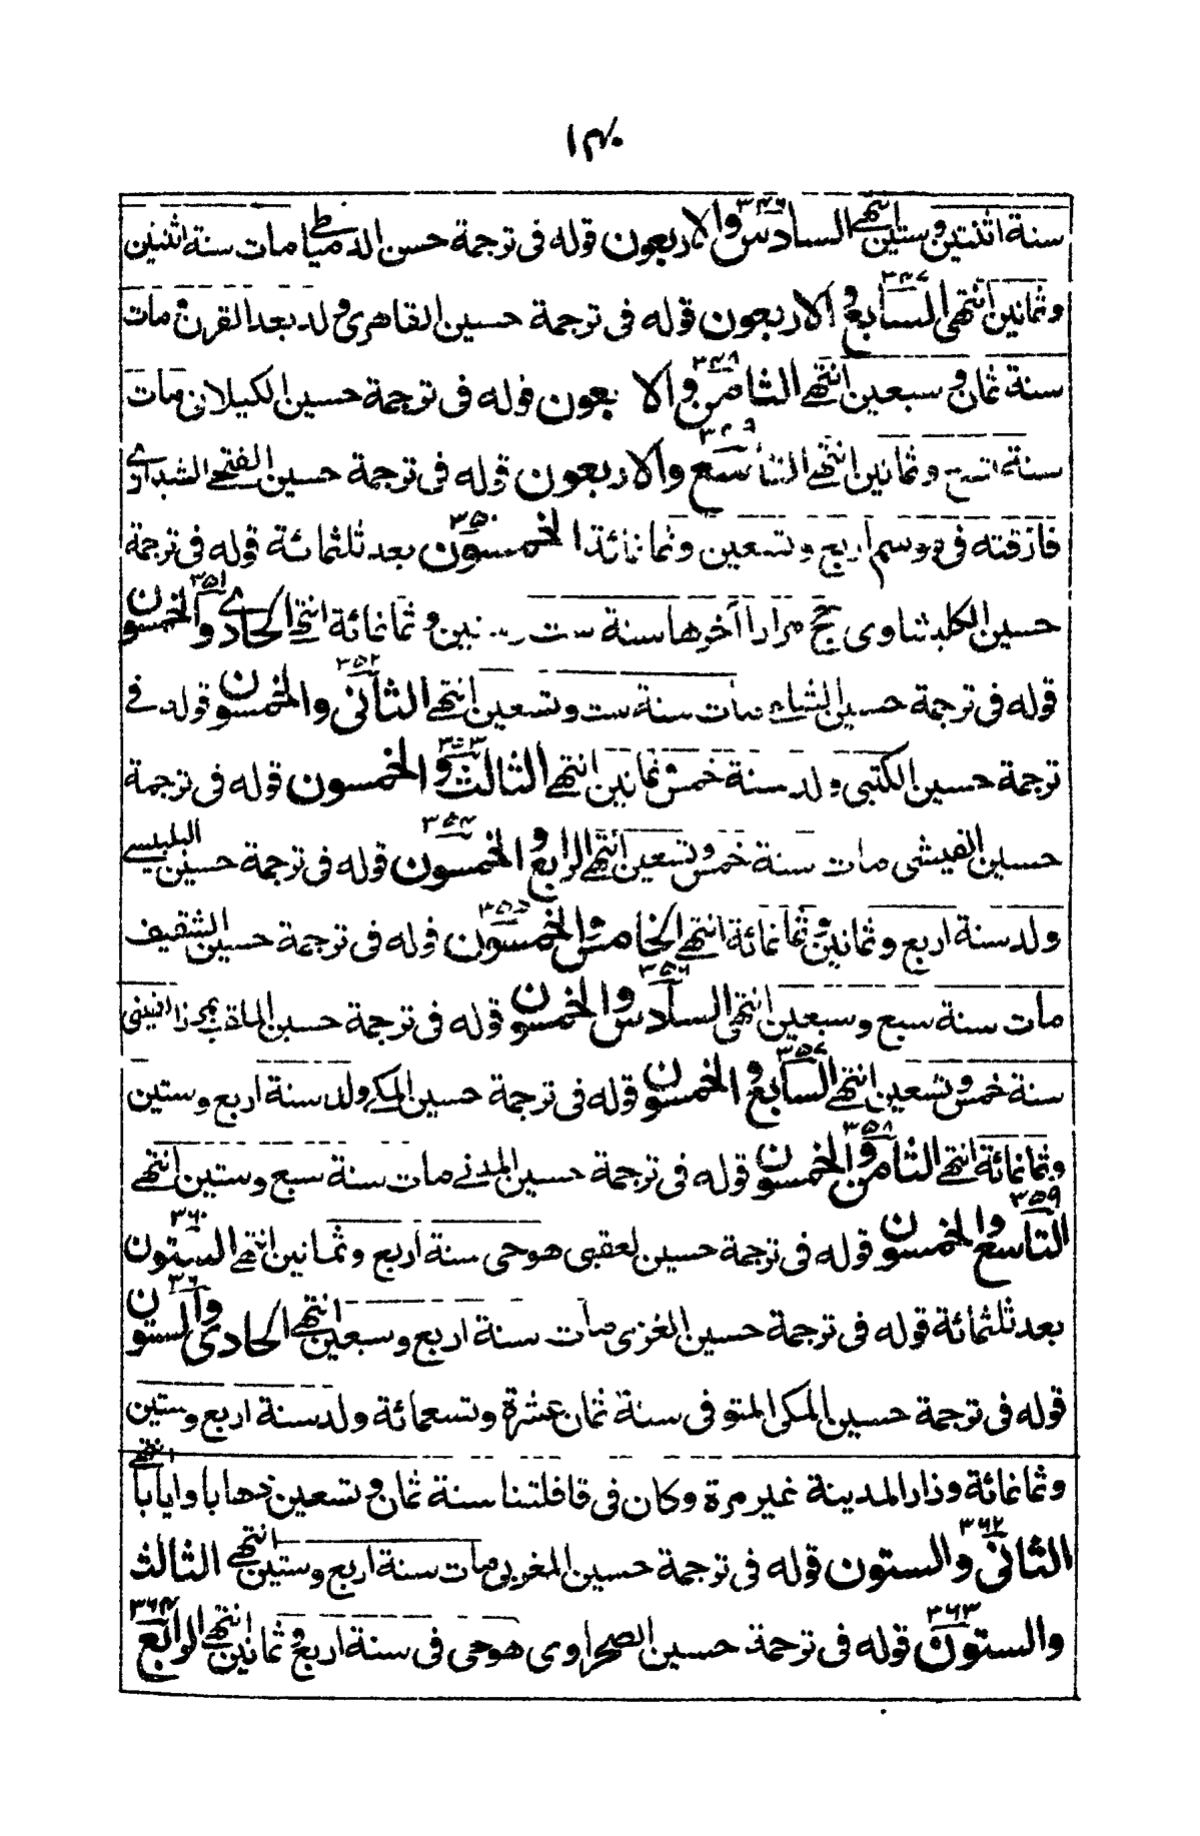 ١٣٠
سنة اثنتين وستين انتهى السادس والاربعون ٣٤٦ قوله فى ترجمة حسن الدمياطي مات سنة اثنين
وثمانين انتهى السابع و الاربعون ٣٤٧ قوله فى ترجمة حسين القاهرى ولد بعد القرن ومات
سنة ثمان وسبعين انتهى الثامن والا بعون ٣٤٨ قوله فى ترجمة حسين الكيلانى مات
سنة تسع وثمانين انتهى التاسع والاربعون ٣٤٩ قوله فى ترجمة حسين الفتحى
فارقته فى موسم اربع وتسعين وثمانمائة الخمسون ٣٥٠ بعد ثلثمائة قوله فى ترجمة
حسين الكلبشاوى حج مرارا آخرها سنة ست وثمانمائة انتهى الحادى والخمسون ٣٥١
قوله فى ترجمة حسين مات سنة ست وتسعين انتهى الثانى والخمسون ٣٥٢ قوله فى
ترجمة حسين الكتبى ولد سنة خمس وثمانين انتهى الثالث والخمسون ٣٥٣ قوله فى ترجمة
حسين الفيشى مات سنة خمس وتسعين انتهى الرابع والخمسون ٣٥٤ قوله فى ترجمة حسين البلبيسى
ولد سنة اربع وثمانين وثمانمائة انتهى الخامس والخمسون ٣٥٥ قوله فى ترجمة حسين الشقيف
مات سنة سبع وسبعين انتهى السادس والخمسون ٣٥٦ قوله فى ترجمة حسين الملقب
سنة خمس وتسعين انتهى السابع و الخمسون ٣٥٧ قوله فى ترجمة حسين المكى ولد سنة اربع وستين
وثمانمائة انتهى الثامن والخمسون ٣٥٨ قوله فى ترجمة حسين المدنى مات سنة سبع وستين انتهى
التاسع والخمسون ٣٥٩ قوله فى ترجمة حسين لعقبى هوحى سنة اربع وثمانين انتهى الستون ٣٦٠
بعد ثلثمائة قوله فى ترجمة حسين الغزى مات سنة اربع وسبعين انتهى الحادى والستون ٣٦
قوله فى ترجمة حسين المكى المتوفى سنة ثمان عشرة وتسعمائة ولد سنة اربع وستين
وثمانمائة وزار المدينة غير مرة وكان فى قافلتنا سنة ثمان وتسعين ذهابا وايابا انتهى
الثانى والستون ٣٦٢ قوله فى ترجمة حسين المغربى مات سنة اربع وستين انتهى الثالث
والستون ٣٦٣ قوله فى ترجمة حسين الصحراوى هوحى فى سنة اربع وثمانين انتهى الرابع ٣٦٤